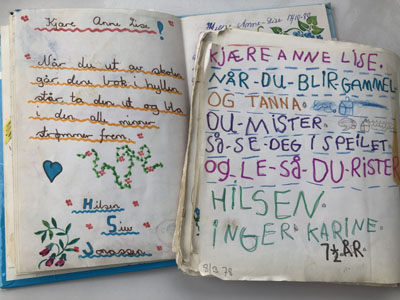 Kjære Anne Lise!
Når du ut av skolen
går den bok i hyllen
står ta den ut og bla
i den alle minner
strømmer frem.
Hilsen
Siw
Jonassen
KJÆRE ANNE LISE.
NÅR-DU-BLIR-GAMMEL
OG TANNA.
DU-MISTER.
SÅ-SE-DEG I SPEILET-
OG-LE-SÅ-DU-RISTER
HILSEN.
INGER KARINE.
7½ ÅR.